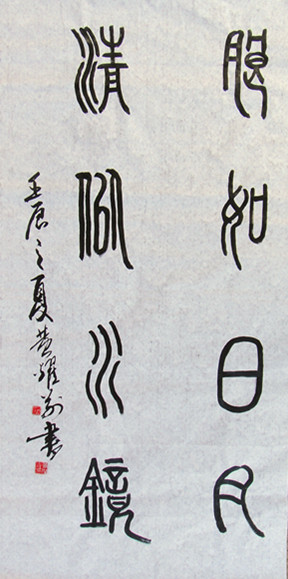 朗如日月
清似水鏡
壬辰之夏黄耀書